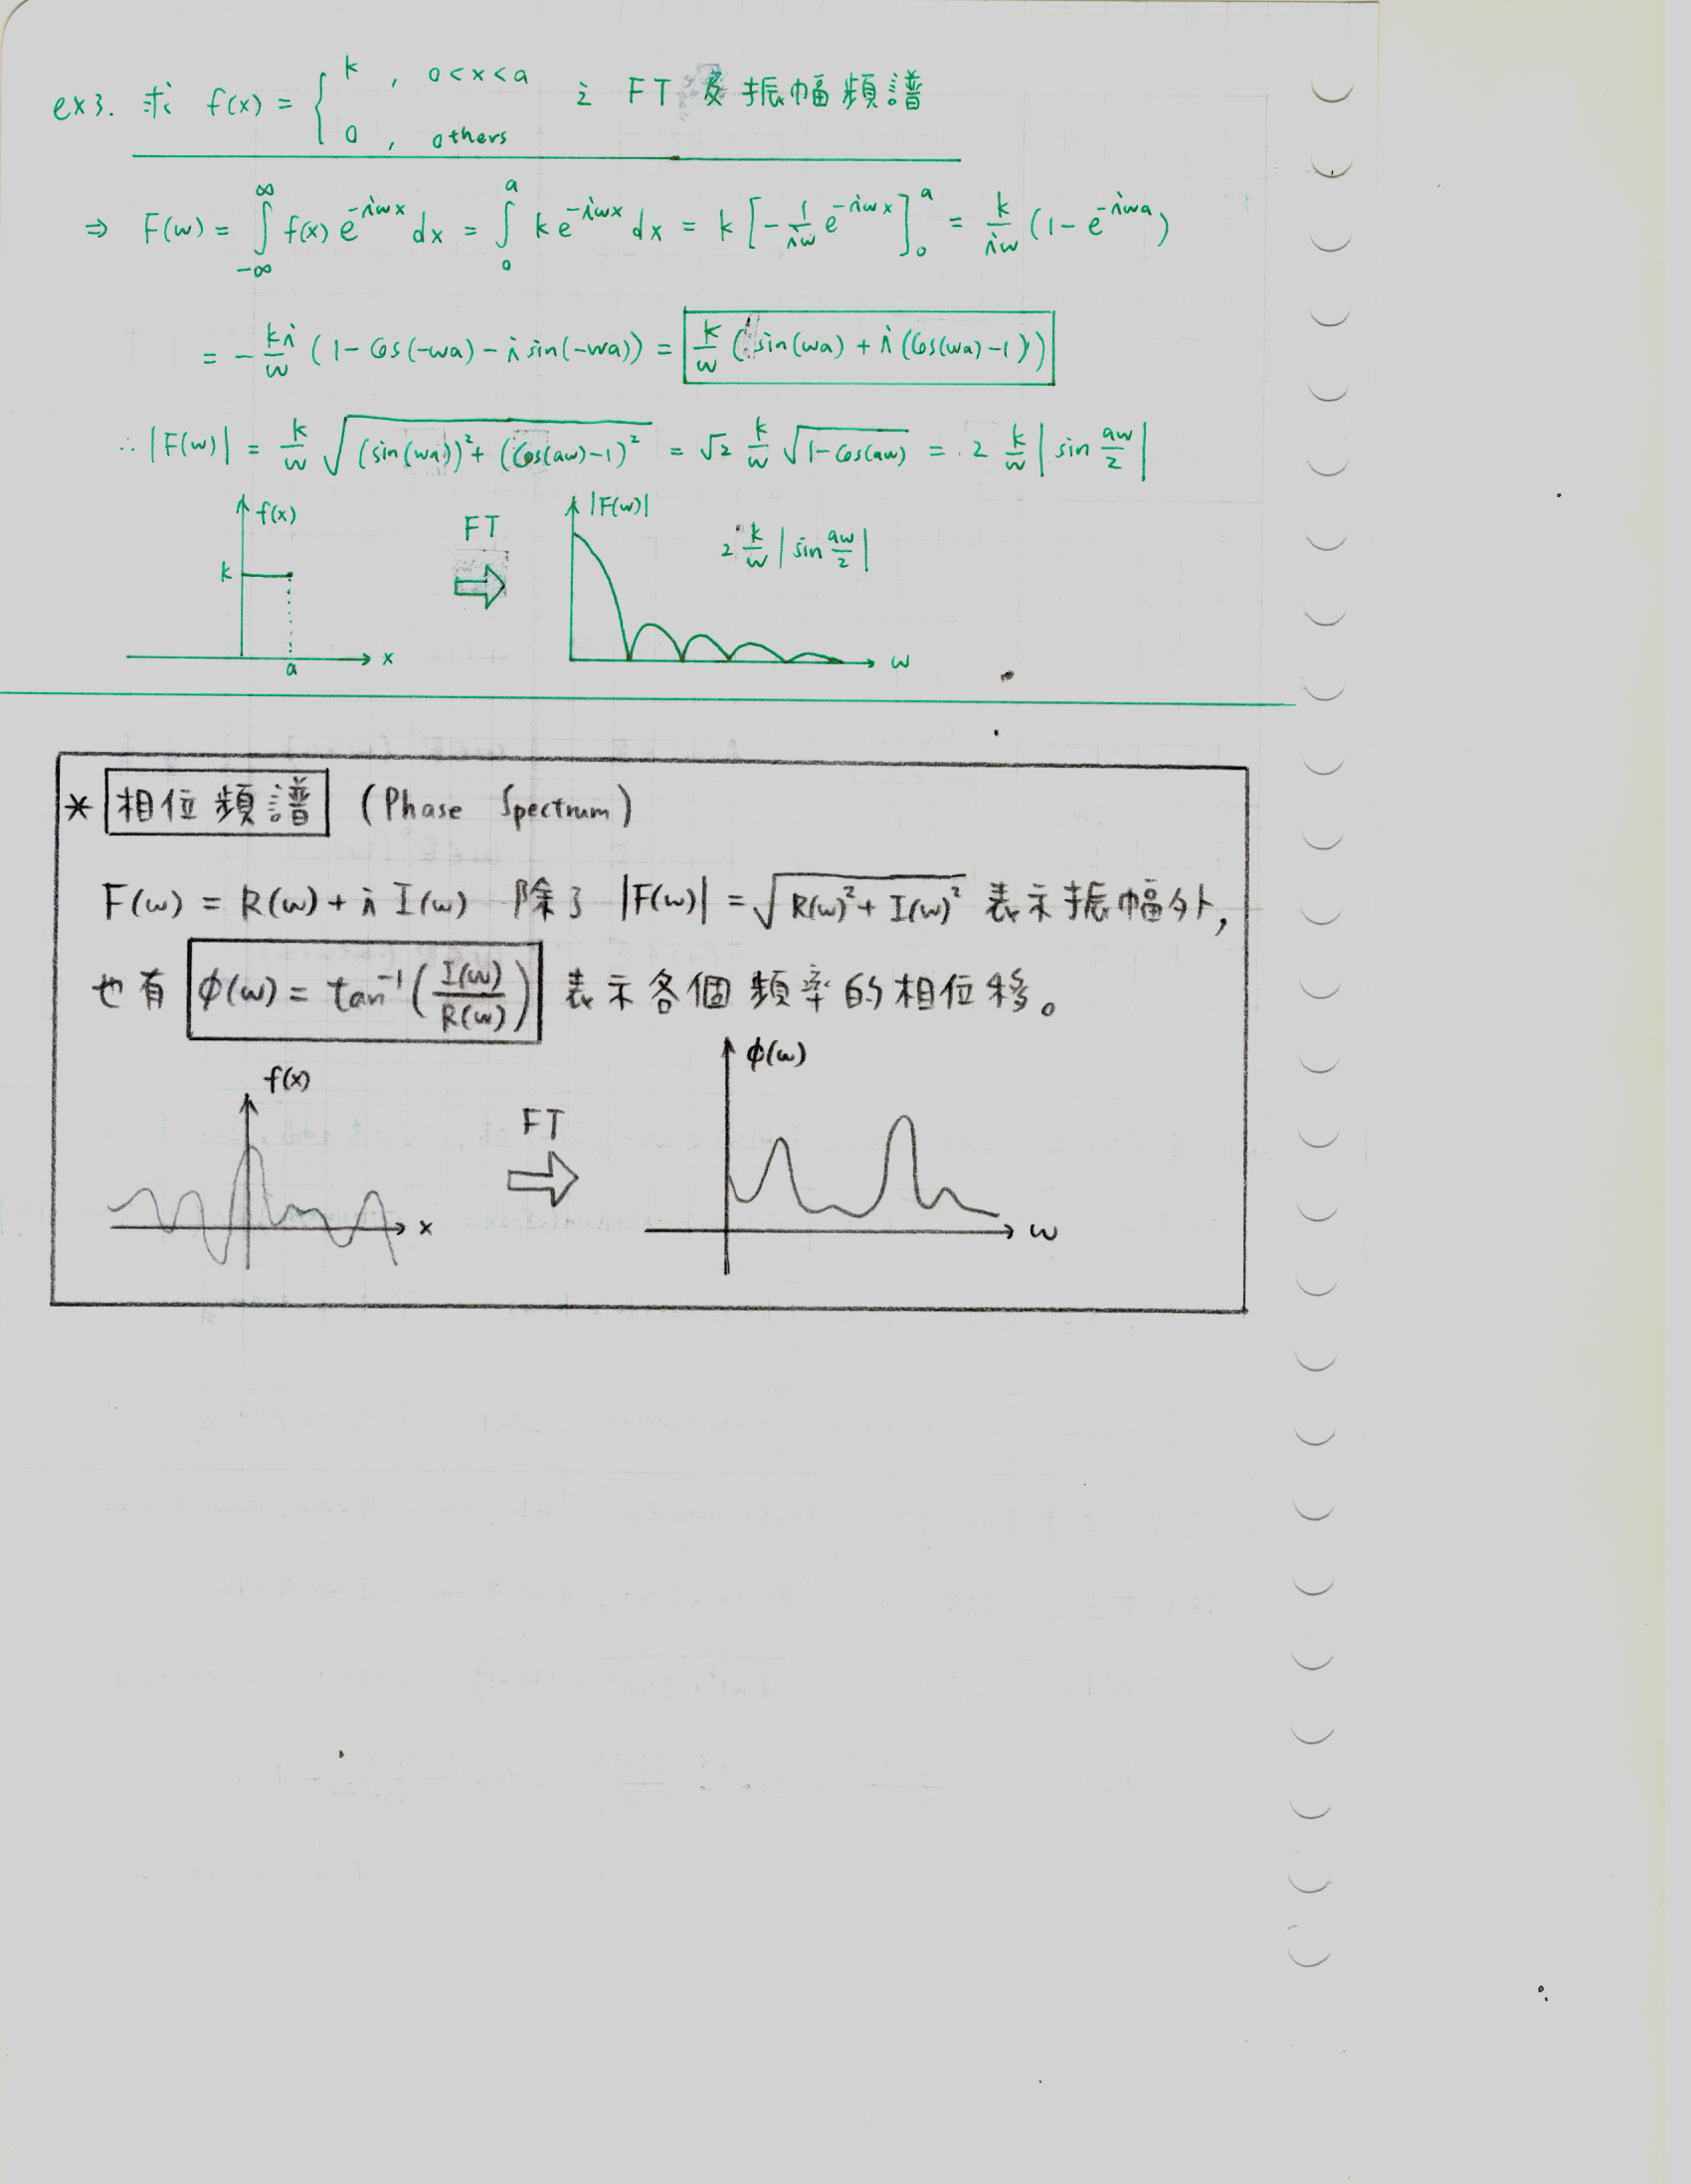 ex3. 求 f(x) = { k , 0<x<a ; 0 , others 之 FT 及 振幅頻譜
⇒ F(w) = ∫_{-∞}^{∞} f(x) e^{-iwx} dx = ∫_0^a k e^{-iwx} dx = k [ -1/(iw) e^{-iwx} ]_0^a = k/(iw) (1 - e^{-iwa})
= - ki/w (1 - cos(-wa) - i sin(-wa)) = k/w ( sin(wa) + i (cos(wa) - 1) )
∴ |F(w)| = k/w √( (sin(wa))² + (cos(aw)-1)² ) = √2 k/w √(1-cos(aw)) = 2 k/w | sin aw/2 |
f(x)
k
a
x
FT
⇒
|F(w)|
2 k/w | sin aw/2 |
w
* 相位頻譜 (Phase Spectrum)
F(w) = R(w) + i I(w) 除了 |F(w)| = √( R(w)² + I(w)² ) 表示振幅外,
也有 φ(w) = tan⁻¹( I(w)/R(w) ) 表示各個頻率的相位移。
f(x)
x
FT
⇒
φ(w)
w